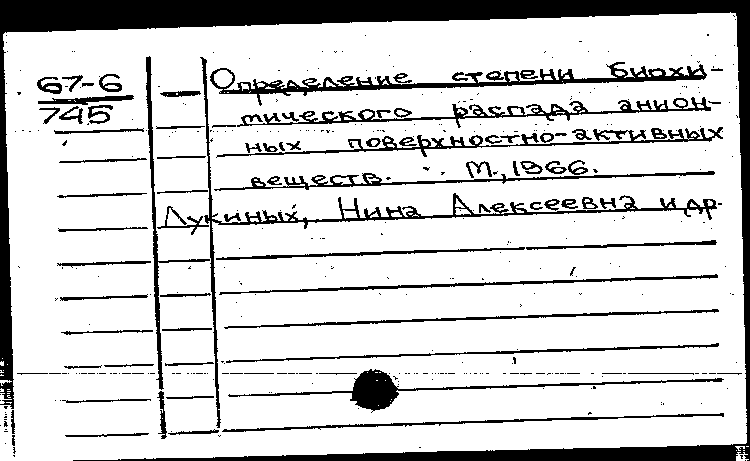 67-6
745
— Определение степени биохи-
мического распада анион-
ных поверхностно-активных
веществ. М., 1966.
Лукиных, Нина Алексеевна и др.